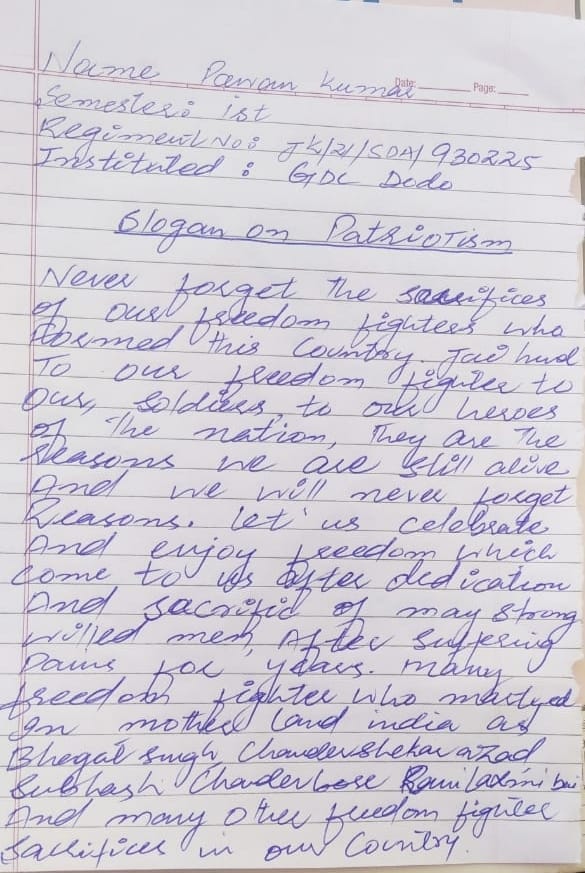 Date: Page:
Name Pawan Kumar
Semester: ist
Regiment No: JK/21/SDA/930225
Instituted : GDC Dodo
Slogan on Patriotism
Never forget the sacrifices
of our freedom fighters who
formed this Country. Jai hind
To our freedom fighter to
Our, soldiers, to our heroes
of The nation, They are The
Reasons we are still alive
And we will never forget
Reasons. let us celebrate
And enjoy freedom which
come to us after dedication
And sacrific of may strong
willed men, After suffering
Pains for years. many
freedom fighter who martyed
In mother land india as
Bhegat singh, Chandershekar azad
Subhash Chaderbose Rani laxmi bai
And many other freedom fighter
Sacrifices in our Country.